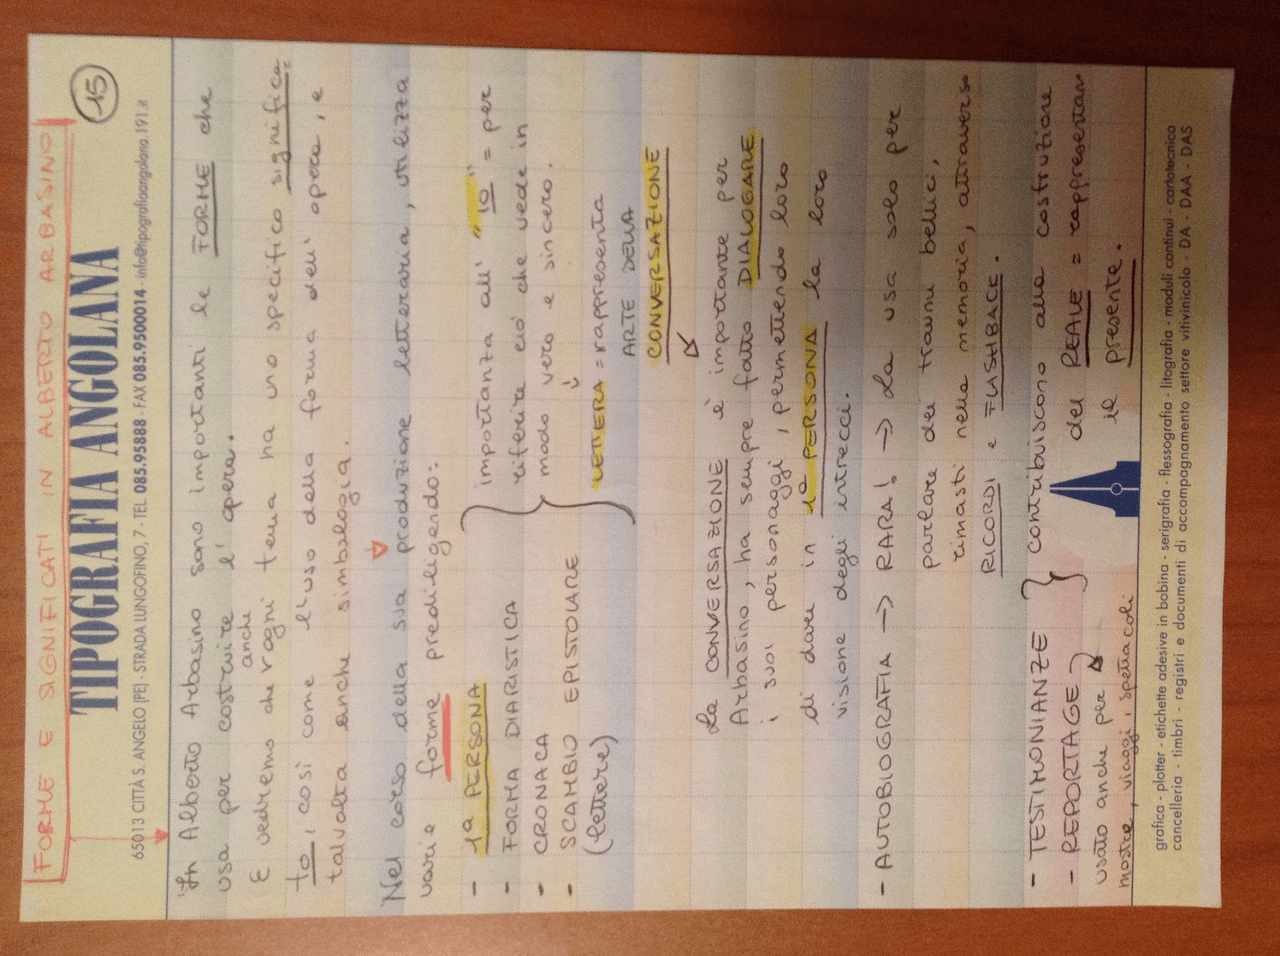 FORME E SIGNIFICATI IN ALBERTO ARBASINO
15
TIPOGRAFIA ANGOLANA
65013 CITTÀ S. ANGELO (PE) - STRADA LUNGOFINO, 7 - TEL. 085.95888 - FAX 085.9500014 - info@tipografiaangolana.191.it
"In Alberto Arbasino sono importanti le FORME che
usa per costruire l'opera.
E vedremo che anche ogni tema ha uno specifico significa
to, così come l'uso della forma dell'opera, e
talvolta anche simbologia.
Nel corso della sua produzione letteraria, utilizza
varie forme prediligendo:
- 1a PERSONA
- FORMA DIARISTICA
- CRONACA
- SCAMBIO EPISTOLARE
(lettere)
importanza all' "io" = per
riferire ciò che vede in
modo vero e sincero.
LETTERA = rappresenta
ARTE DELLA
CONVERSAZIONE
La CONVERSAZIONE è importante per
Arbasino, ha sempre fatto DIALOGARE
i suoi personaggi, permettendo loro
di dare in 1a PERSONA la loro
visione degli intrecci.
- AUTOBIOGRAFIA → RARA! → La usa solo per
parlare dei traumi bellici,
rimasti nella memoria, attraverso
RICORDI e FLASHBACK.
- TESTIMONIANZE
- REPORTAGE
contribuiscono alla costruzione
del REALE = rappresentan
il presente.
usato anche per
mostre, viaggi, spettacoli
grafica - plotter - etichette adesive in bobina - serigrafia - flessografia - litografia - moduli continui - cartotecnica
cancelleria - timbri - registri e documenti di accompagnamento settore vitivinicolo - DA - DAA - DAS